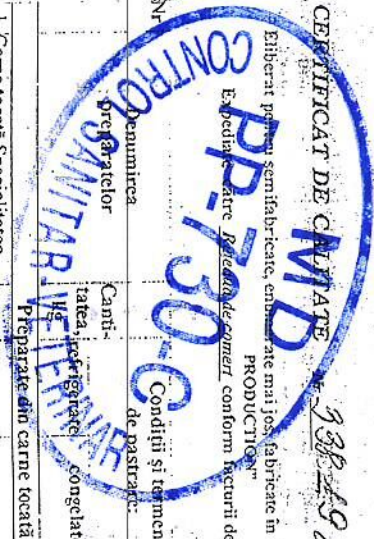 CERTIFICAT DE CALITATE Nr.
Eliberat pentru semifabricate, enumerate mai jos, fabricate în
PRODUCTION"
Expediate către Rețeaua de comerț conform facturii de
Nr
Denumirea
preparatelor
Canti-
tatea,
kg
Condiții și termen
de pastrare:
refrigerate
congelat
Preparate din carne tocată
1
MD
PP-730-C
CONTROL SANITAR-VETERINAR